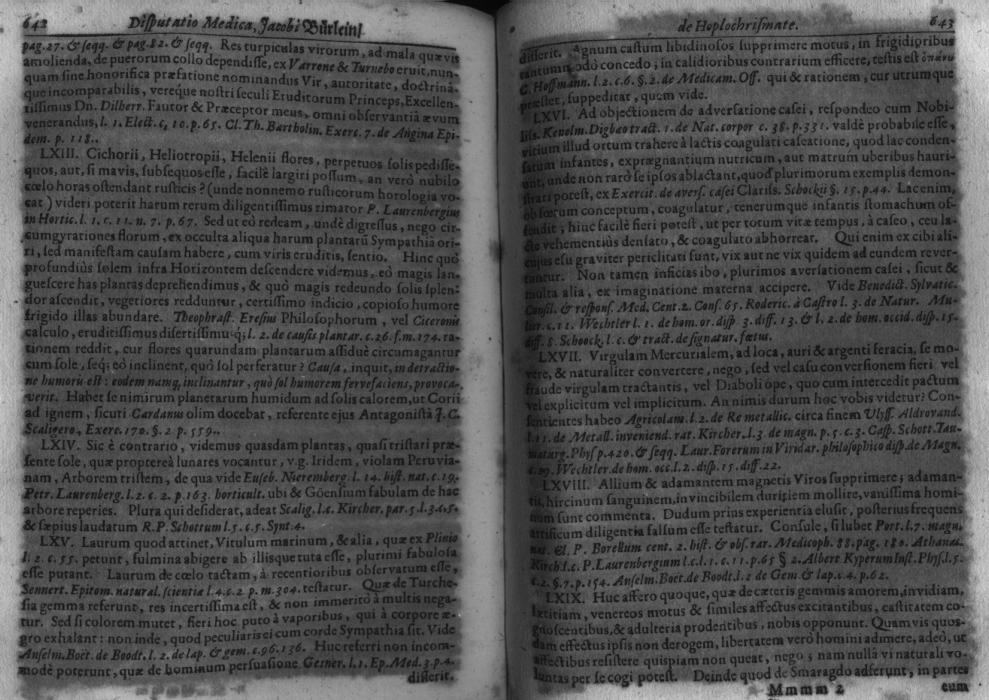 642 Disputatio Medica, Jacobi Bürleini
pag.27. & seqq. & pag.82. & seqq. Res turpiculas virorum, ad mala quævis
amolienda, de puerorum collo dependisse, ex Varrone & Turnebo eruit, nun-
quam sine honorifica præfatione nominandus Vir, autoritate, doctrinâ-
que incomparabilis, vereque nostri seculi Eruditorum Princeps, Excellen-
tissimus Dn. Dilherr. Fautor & Præceptor meus, omni observantiâ ævum
venerandus, l. 1. Elect. c, 10. p. 65. Cl. Th. Bartholin. Exerc. 7. de Angina Epi-
dem. p. 118..
LXIII. Cichorii, Heliotropii, Helenii flores, perpetuos solis pedisse-
quos, aut, si mavis, subsequos esse, facilè largiri possum, an verò nubilo
cœlo horas ostendant rusticis? (unde nonnemo rusticorum horologia vo-
cat) videri poterit harum rerum diligentissimus rimator P. Laurenbergius
in Hortic. l. 1. c. 11. n. 7. p. 67. Sed ut eò redeam, undè digressus, nego cir-
cumgyrationes florum, ex occulta aliqua harum plantarũ Sympathia ori-
ri, sed manifestam causam habere, cum viris eruditis, sentio. Hinc quò
profundiùs solem infra Horizontem descendere videmus, eò magis lan-
guescere has plantas deprehendimus, & quò magis redeundo solis splen-
dor ascendit, vegetiores redduntur, certissimo indicio, copioso humore
frigido illas abundare. Theophrast. Eresius Philosophorum, vel Ciceronis
calculo, eruditissimus disertissimusq; l. 2. de causis plantar. c. 26. f. m. 174. ra-
tionem reddit, cur flores quarundam plantarum assiduè circumagantur
cum sole, seq; eò inclinent, quò sol perferatur? Causa, inquit, in detractio-
ne humoris est: eodem namq; inclinantur, quò sol humorem fervefaciens, provoca-
verit. Habet se nimirum planetarum humidum ad solis calorem, ut Corii
ad ignem, sicuti Cardanus olim docebat, referente ejus Antagonistâ J. C.
Scaligero, Exerc. 170. §. 2. p. 559..
LXIV. Sic è contrario, videmus quasdam plantas, quasi tristari præ-
sente sole, quæ proptereà lunares vocantur, v. g. Iridem, violam Peruvia-
nam, Arborem tristem, de qua vide Euseb. Nieremberg. l. 14. hist. nat. c. 19.
Petr. Laurenberg. l. 2. c. 2. p. 163. horticult. ubi & Göensium fabulam de hac
arbore reperies. Plura qui desiderat, adeat Scalig. l. c. Kircher. par. 5. l. 3. c. 5.
& sæpius laudatum R. P. Schottum l. 5. c. 5. Synt. 4.
LXV. Laurum quod attinet, Vitulum marinum, & alia, quæ ex Plinio
l. 2. c. 55. petunt, fulmina abigere ab illisque tuta esse, plurimi fabulosa
esse putant. Laurum de cœlo tactam, à recentioribus observatum esse,
Sennert. Epitom. natural. scientiæ l. 4. c. 2 p. m. 304. testatur. Quæ de Turche-
sia gemma referunt, res incertissima est, & non immeritò à multis nega-
tur. Sed si colorem mutet, fieri hoc puto à vaporibus, qui à corpore æ-
gro exhalant: non inde, quod peculiaris ei cum corde Sympathia sit. Vide
Anselm. Boët. de Boodt. l. 2. de lap. & gem. c. 96. 136. Huc referri non incom-
modè poterunt, quæ de hominum persuasione Gesner. l. 1. Ep. Med. 3. p. 4.
disserit.
de Hoplochrismate. 643
disserit. Agnum castum libidinosos supprimere motus, in frigidioribus
tantummodò concedo; in calidioribus contrarium efficere, testis est
C. Hoffmann. l. 2. c. 6. §. 2. de Medicam. Off. qui & rationem, cur utrumque
præstet, suppeditat, quem vide.
LXVI. Ad objectionem de adversatione casei, respondeo cum Nobi-
liss. Kenolm. Digbæo tract. 1. de Nat. corpor c. 38. p. 331. valdè probabile esse,
vitium illud ortum trahere à lactis coagulati caseatione, quod lac conden-
satum infantes, ex prægnantium nutricum, aut matrum uberibus hauri-
unt, unde non rarò se ipsos ablactant, quod plurimorum exemplis demon-
strari potest, ex Exercit. de avers. casei Clariss. Schockii §. 15. p. 44. Lac enim,
ob fœtum conceptum, coagulatur, tenerumque infantis stomachum of-
fendit; hinc facilè fieri potest, ut per totum vitæ tempus, à caseo, ceu la-
cte vehementiùs densato, & coagulato abhorreat. Qui enim ex cibi ali-
cujus esu graviter periclitati sunt, vix aut ne vix quidem ad eundem rever-
tuntur. Non tamen inficias ibo, plurimos aversationem casei, sicut &
multa alia, ex imaginatione materna accipere. Vide Benedict. Sylvatic.
Consil. & respons. Med. Cent. 2. Cons. 65. Roderic. à Castro l. 3. de Natur. Mu-
lier. c. 11. Wechtler l. 1. de hom. or. disp. 3. diff. 13. & l. 2. de hom. occid. disp. 15.
diff. 8. Schoock. l. c. & tract. de signatur. fœtus.
LXVII. Virgulam Mercurialem, ad loca, auri & argenti feracia, se mo-
vere, & naturaliter convertere, nego, sed vel casu conversionem fieri vel
fraude virgulam tractantis, vel Diaboli ope, quo cum intercedit pactum
vel explicitum vel implicitum. An nimis durum hoc vobis videtur? Con-
sentientes habeo Agricolam. l. 2. de Re metallic. circa finem Ulyss. Aldrovand.
l. 1 1. de Metall. inveniend. rat. Kircher. l. 3. de magn. p. 5. c. 3. Casp. Schott. Tau-
maturg. Phys p. 420. & seqq. Laur. Forerum in Viridar. philosophico disp. de Magn.
c. 29. Wechtler de hom. occ. l. 2. disp. 15. diff. 22.
LXVIII. Allium & adamantem magnetis Viros supprimere; adaman-
tis, hircinum sanguinem, invincibilem duritiem mollire, vanissima homi-
num sunt commenta. Dudum prius experientia elusit, posterius frequens
artificum diligentia falsum esse testatur. Consule, si lubet Port. l. 7. magn.
nat. Cl. P. Borellum cent. 2. hist. & obs. rar. Medicoph. 88. pag. 180. Athanas.
Kirch. l. c. P. Laurenbergium l. c. l. 1. c. 11. p. 65 § 2. Albert Kyperum Inst. Phys. l. 5.
c. 2. §. 7. p. 154. Anselm. Boët. de Boodt. l. 2 de Gem & lap. c. 4. p. 62.
LXIX. Huc assero quoque, quæ de cæteris gemmis amorem, invidiam,
lætitiam, venereos motus & similes affectus excitantibus, castitatem co-
gnoscentibus, & adulteria prodentibus, nobis opponunt. Quamvis quos-
dam effectus ipsis non derogem, libertatem verò homini adimere, adeò, ut
affectibus resistere quispiam non queat, nego; nam nulla vi naturali vo-
luntas per se cogi potest. Deinde quod de Smaragdo adserunt, in partes
Mmmm 2 cum